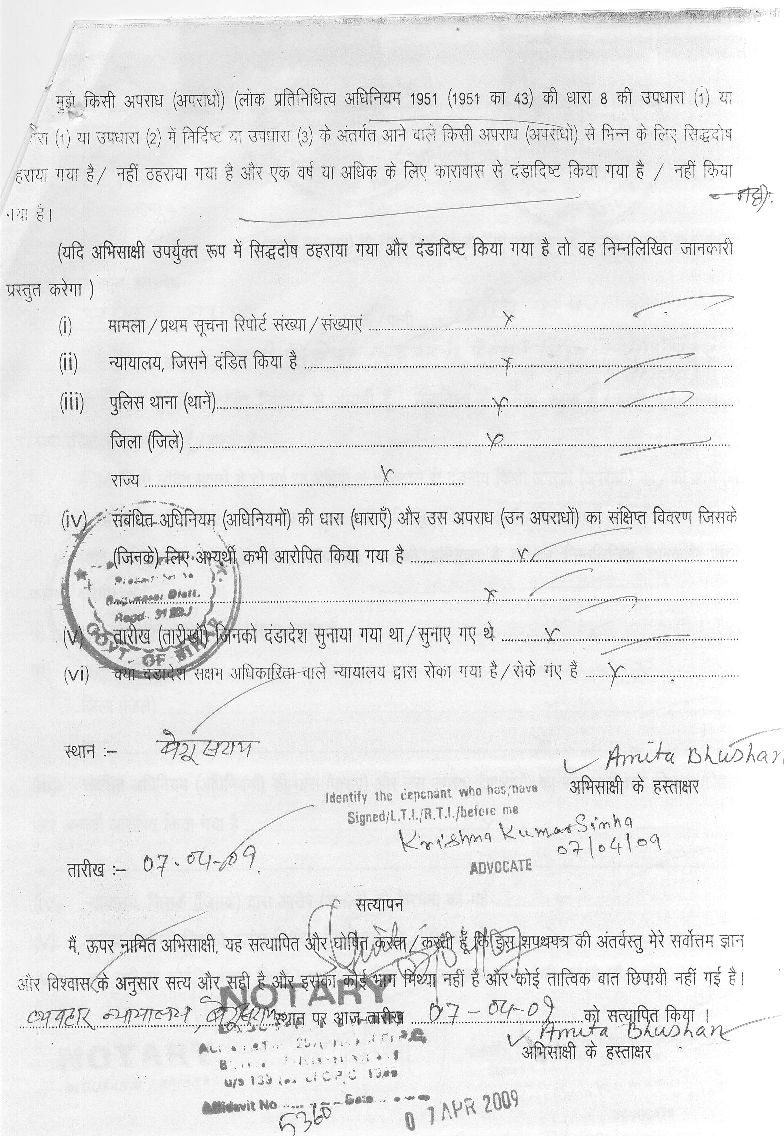 मुझे किसी अपराध (अपराधों) (लोक प्रतिनिधित्व अधिनियम 1951 (1951 का 43) की धारा 8 की उपधारा (1) या
(1) या उपधारा (2) में निर्दिष्ट या उपधारा (3) के अंतर्गत आने वाले किसी अपराध (अपराधों) से भिन्न के लिए सिद्धदोष
हराया गया है / नहीं ठहराया गया है और एक वर्ष या अधिक के लिए कारावास से दंडादिष्ट किया गया है / नहीं किया
नहीं
गया है।
(यदि अभिसाक्षी उपर्युक्त रूप में सिद्धदोष ठहराया गया और दंडादिष्ट किया गया है तो वह निम्नलिखित जानकारी
प्रस्तुत करेगा )
(i) मामला / प्रथम सूचना रिपोर्ट संख्या / संख्याएं x
(ii) न्यायालय, जिसने दंडित किया है x
(iii) पुलिस थाना (थाने) x
जिला (जिले) x
राज्य x
(iv) संबंधित अधिनियम (अधिनियमों) की धारा (धाराएँ) और उस अपराध (उन अपराधों) का संक्षिप्त विवरण जिसके
(जिनके) लिए अभ्यर्थी कभी आरोपित किया गया है x
x
Distt.
Regd.
GOVT. OF
(v) तारीख (तारीखों) जिनको दंडादेश सुनाया गया था / सुनाए गए थे x
(vi) क्या दंडादेश सक्षम अधिकारिता वाले न्यायालय द्वारा रोका गया है / रोके गए हैं x
स्थान :– बेगूसराय
Amita Bhushan
अभिसाक्षी के हस्ताक्षर
Identify the deponant who has/have
Signed/L.T.I./R.T.I./before me
Krishna Kumar Sinha
07/04/09
ADVOCATE
तारीख :– 07-04-09
सत्यापन
मैं, ऊपर नामित अभिसाक्षी, यह सत्यापित और घोषित करता / करती हूँ कि इस शपथपत्र की अंतर्वस्तु मेरे सर्वोत्तम ज्ञान
और विश्वास के अनुसार सत्य और सही है और इसका कोई भाग मिथ्या नहीं है और कोई तात्विक बात छिपायी नहीं गई है।
NOTARY
व्यवहार न्यायालय, बेगूसराय स्थान पर आज तारीख 07-04-09 को सत्यापित किया ।
Amita Bhushan
अभिसाक्षी के हस्ताक्षर
u/s 139
Affidavit No 5360 Date
07 APR 2009